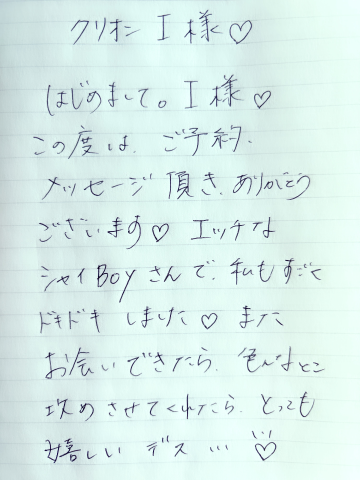 クリオン I 様♡
はじめまして。I 様♡
この度は、ご予約、
メッセージ頂き、ありがとう
ございます♡ エッチな
シャイBoyさんで、私もすごく
ドキドキしました♡ また
お会いできたら、色んなとこ
攻めさせてくれたら、とっても
嬉しいデス…♡